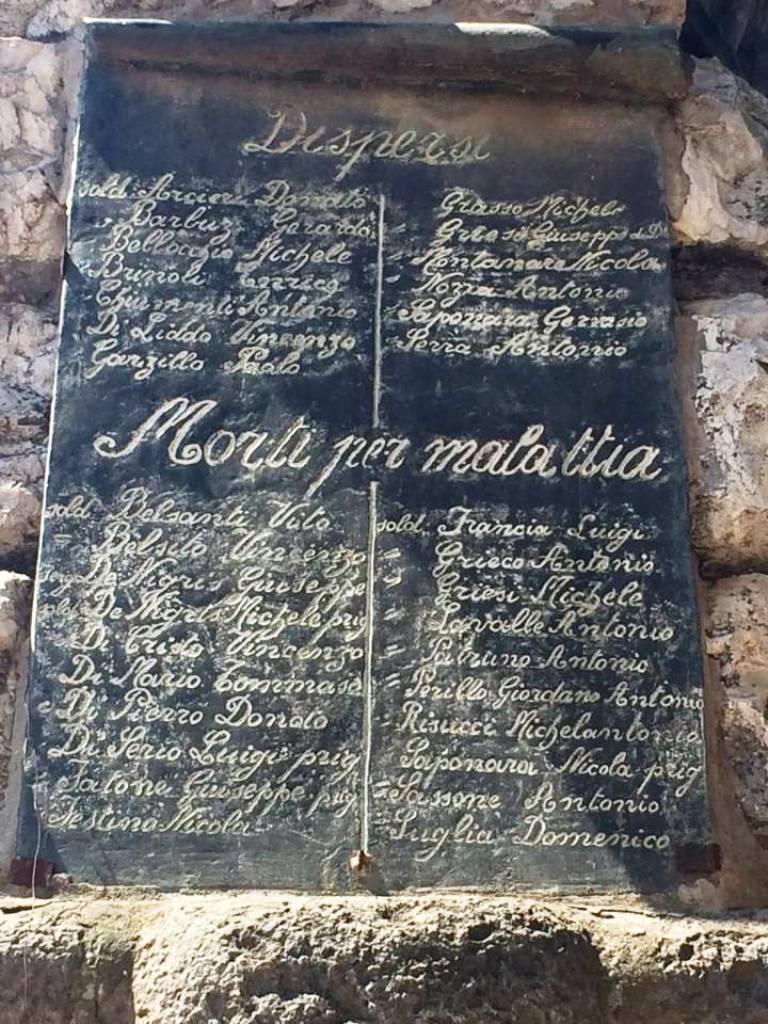 Dispersi
sold. Arcieri Donato
" Barbuz Gerardo
" Bellocchio Michele
" Brinoli Enrico
" Chiumenti Antonio
" Di Liddo Vincenzo
" Garzillo Paolo
Grasso Michele
" Griesi Giuseppe
" Montanare Nicola
" Nozza Antonio
" Saponara Gervasio
" Serra Antonio
Morti per malattia
sold. Belsanti Vito
" Belsito Vincenzo
serg. De Nigris Giuseppe
sold. De Nigris Michele prig
" Di Cristo Vincenzo
" Di Mario Tommaso
" Di Pierro Donato
" Di Serio Luigi prig
" Fatone Giuseppe prig
" Festina Nicola
sold. Francia Luigi
" Grieco Antonio
" Griesi Michele
" Lavalle Antonio
" Patruno Antonio
" Perillo Giordano Antonio
" Risucci Michelantonio
" Saponara Nicola prig
" Sassone Antonio
" Suglia Domenico